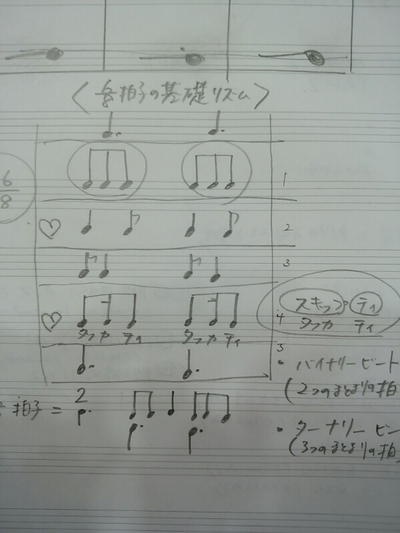 〈6/8拍子の基礎リズム〉
6
8
1
2
3
スキップ ティ
4 タッカ ティ
タッカ ティ タッカ ティ
5
・バイナリービート
(2つのまとまりの拍
拍子 = 2
・ターナリービー
(3つのまとまりの拍